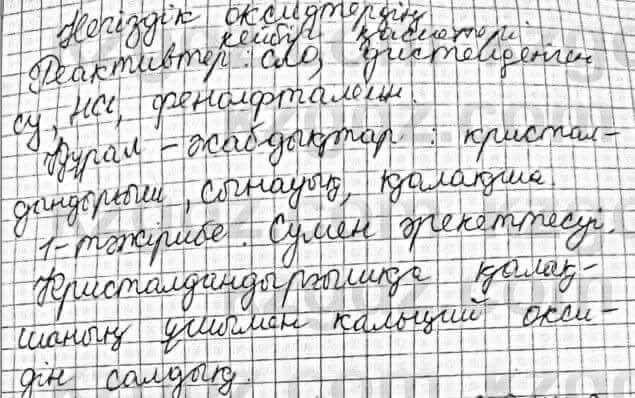 Негіздік оксидтердің
кейбір қасиеттері
Реактивтер: CaO, дистелденген
су, HCl, фенолфталеин.
Құрал-жабдықтар: кристал-
дандырғыш, сынауық, қалақша.
1-тәжірибе. Сумен әрекеттесуі.
Кристалдандырғышқа қалақ-
шаның ұшымен кальций окси-
дін салдық.